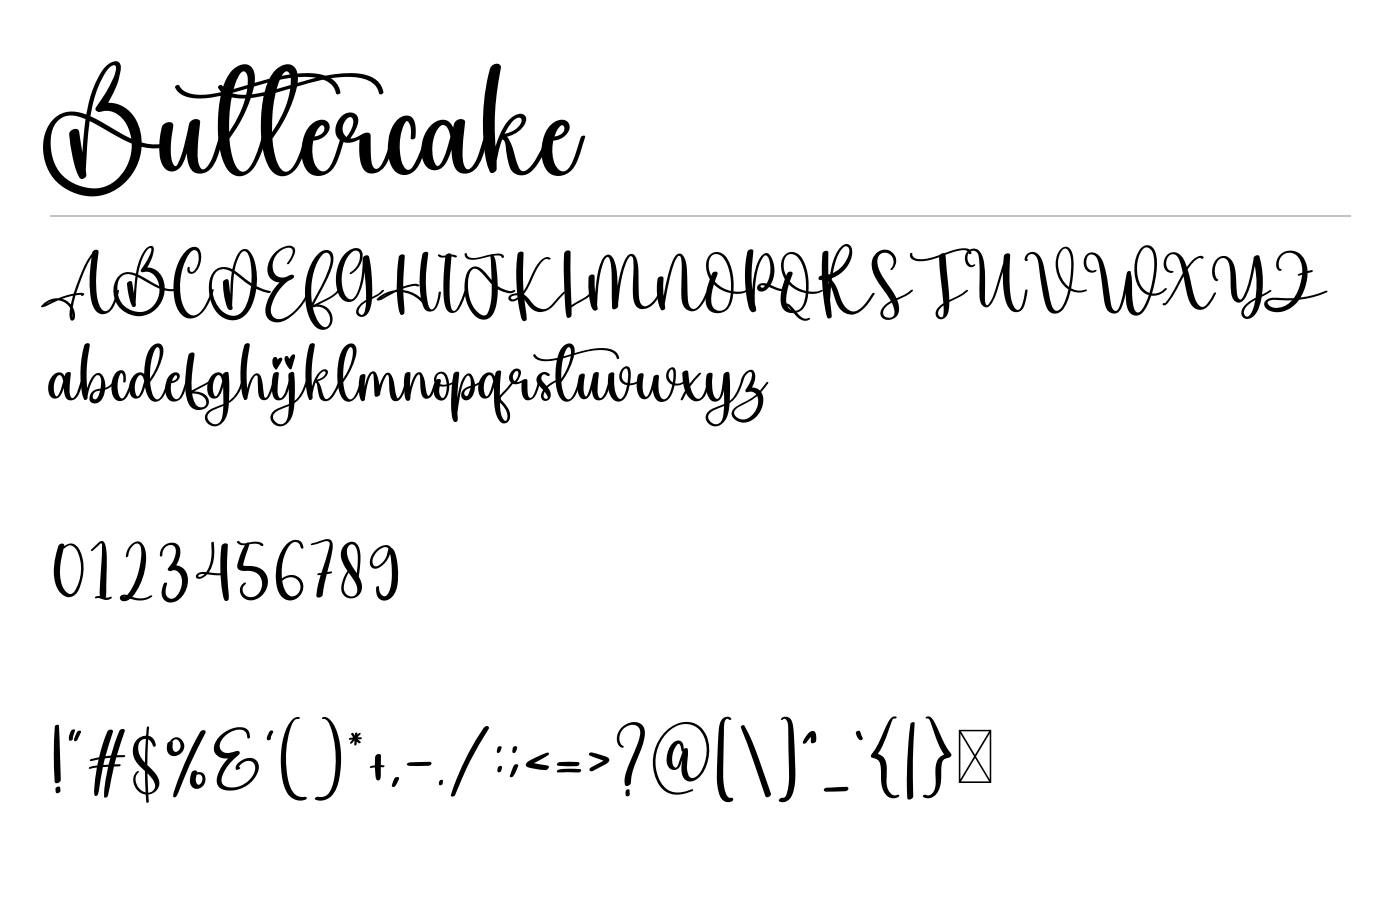 Buttercake
ABCDEFGHIJKLMNOPQRSTUVWXYZ
abcdefghijklmnopqrstuvwxyz
0123456789
!"#$%&'()*+,-./:;<=>?@[\]^_`{|}